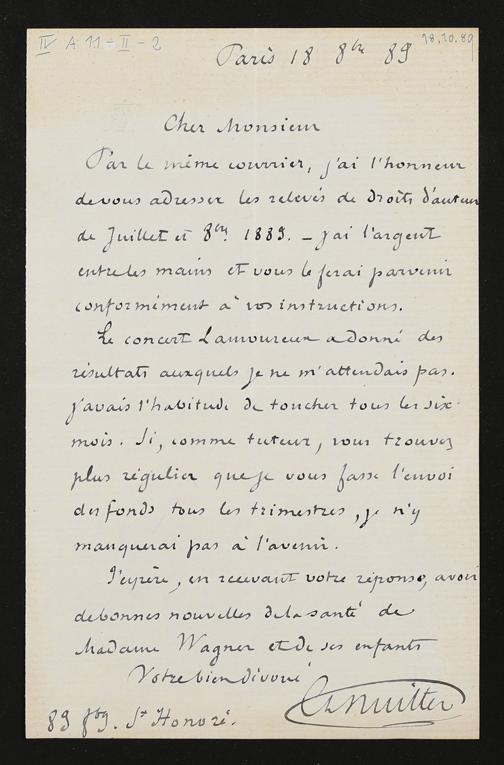 IV A 11 - II - 2
18.10.89
Paris 18 8bre 89
Cher Monsieur
Par le même courrier, j'ai l'honneur
de vous adresser les relevés de Droits d'auteur
de Juillet et 8bre 1889. — j'ai l'argent
entre les mains et vous le ferai parvenir
conformément à vos instructions.
Le concert Lamoureux a donné des
résultats auxquels je ne m'attendais pas.
j'avais l'habitude de toucher tous les six
mois. Si, comme tuteur, vous trouvez
plus régulier que je vous fasse l'envoi
des fonds tous les trimestres, je n'y
manquerai pas à l'avenir.
J'espère, en recevant votre réponse, avoir
de bonnes nouvelles de la santé de
Madame Wagner et de ses enfants
Votre bien dévoué
Ch Nuitter
89 fbg. St Honoré.